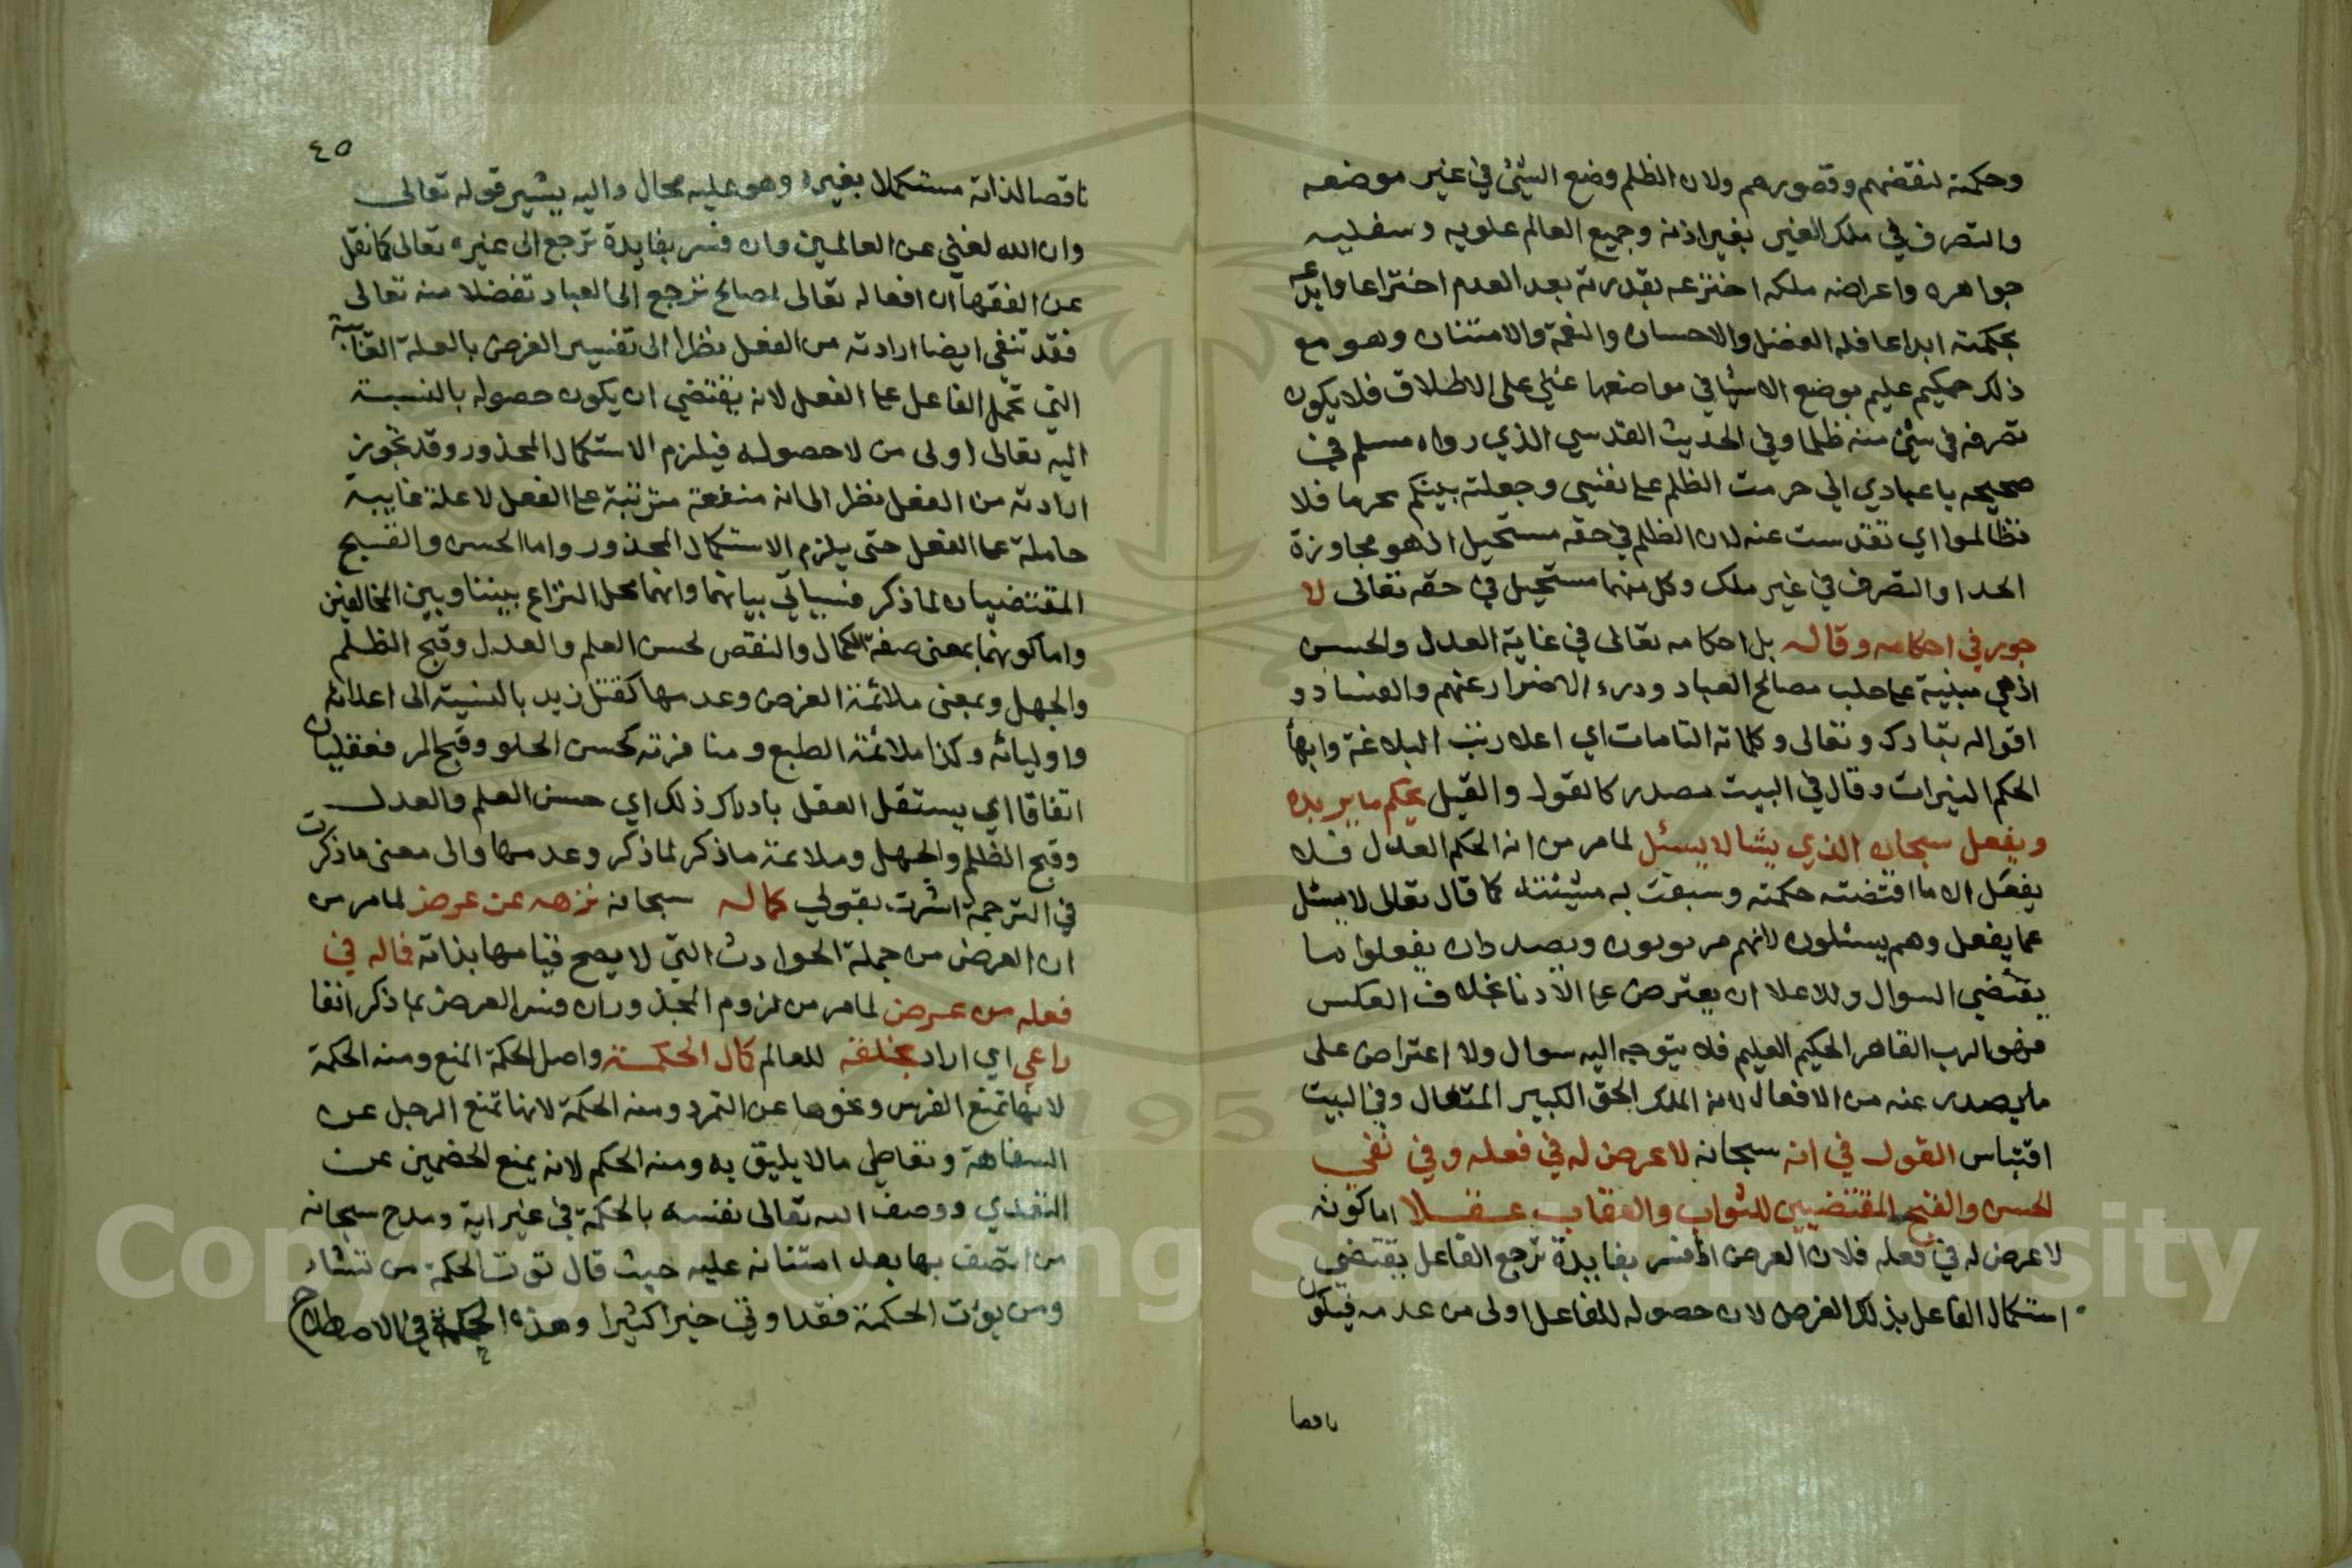 وحكمته لنقضهم وقصورهم ولان الظلم وضع الشئ في غير موضعه
والتصرف في ملك الغير بغير اذنه وجميع العالم علويه وسفليه
جواهره واعراضه ملكه اخترعه بقدرته بعد العدم اختراعا وابدعه
بحكمته ابداعا فله الفضل والاحسان والنعمة والامتنان وهو مع
ذلك حكيم عليم بوضع الاشيا في مواضعها غني على الاطلاق فلا يكون
تصرفه في شئ منه ظلما وفي الحديث القدسي الذي رواه مسلم في
صحيحه يا عبادي اني حرمت الظلم على نفسي وجعلته بينكم محرما فلا
تظالموا اي تقدست عنه لان الظلم في حقه مستحيل اذ هو مجاوزة
الحد او التصرف في غير ملك وكل منهما مستحيل في حقه تعالى لا
جور في احكامه وقاله بل احكامه تعالى في غاية العدل والحسن
اذ هي مبنية على جلب مصالح العباد ودرء الاضرار عنهم والفساد و
اقواله تبارك وتعالى وكلماته التامات اي اعلا رتب البلاغة وابهأ
الحكم النيرات وقال في البيت مصدر كالقول والقيل يحكم ما يريده
ويفعل سبحان الذي يشا لا يسئل لما مر من انه الحكم العدل فلا
يفعل الا ما اقتضته حكمته وسبقت به مشيئته كما قال تعالى لا يسئل
عما يفعل وهم يسئلون لانهم مربوبون وبصدد ان يفعلوا ما
يقتضي السوال وللاعلا ان يعترض على الأدنا بخلاف العكس
فهو الرب القاهر الحكيم العليم فلا يتوجه اليه سوال ولا اعتراض على
ما يصدر عنه من الافعال لانه الملك الحق الكبير المتعال وفي البيت
اقتباس القول في انه سبحانه لا غرض له في فعله وفي نفي
الحسن والقبح المقتضيين للثواب والعقاب عقلا اما كونه
لا غرض له في فعله فلان الغرض ان فسر بفايدة ترجع الفاعل يقتضي
استكمال الفاعل بذلك الغرض لان حصوله للفاعل اولى من عدمه فيكون
ناقصا
٤٥
ناقصا لذاته مستكملا بغيره وهو عليه محال واليه يشير قوله تعالى
وان الله لغني عن العالمين وان فسر بفايدة ترجع الى غيره تعالى كما نقل
عن الفقهأ ان افعاله تعالى لمصالح ترجع الى العباد تفضلا منه تعالى
فقد تنفى ايضا ارادته من الفعل نظرا الى تفسير الغرض بالعلة الغايية
التي تحمل الفاعل على الفعل لانه يقتضي ان يكون حصوله بالنسبة
اليه تعالى اولى من لا حصوله فيلزم الاستكمال المحذور وقد تجوز
ارادته من الفعل نظرا الى انه منفعة مترتبة على الفعل لا علة غايية
حاملة على الفعل حتى يلزم الاستكمال المحذور واما الحسن والقبيح
المقتضيان لما ذكر فسياتي بيانهما وانهما محل النزاع بيننا وبين المخالفين
واما كونهما بمعنى صفة الكمال والنقص لحسن العلم والعدل وقبح الظلم
والجهل وبمعنى ملائمة الغرض وعدمها كقتل زيد بالنسبة الى اعدائه
واوليائه وكذا ملائمة الطبع ومنافرته كحسن الحلو وقبح المر فعقليان
اتفاقا اي يستقل العقل بادراك ذلك اي حسن العلم والعدل
وقبح الظلم والجهل وملاءمة ما ذكر لما ذكر وعدمها والى معنى ما ذكرت
في الترجمة اشرت بقولي كماله سبحانه نزهه عن عرض لما مر من
ان العرض من جملة الحوادث التي لا يصح قيامها بذاته فاله في
فعله من غرض لما مر من لزوم المحذور ان فسر الغرض بما ذكر انفا
راعى اي اراد بخلقه للعالم كمال الحكمة واصل الحكمة المنع ومنه الحكمة
لانها تمنع الفرس ونحوها عن التمرد ومنه الحكمة لانها تمنع الرجل عن
السفاهة وتعاطي ما لا يليق به ومنه الحكم لانه يمنع الخصمين عن
التعدي ووصف الله تعالى نفسه بالحكمة في غير اية ومدح سبحانه
من اتصف بها بعد امتنانه عليه حيث قال توت الحكمة من تشاء
ومن يوت الحكمة فقد اوتي خيرا كثيرا وهذه الحكمة في الاصطلاح
Copyright © King Saud University
1957